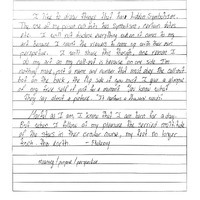 I like to draw things that have hidden symbolism.
The use of my occult has symbolism & certain dates
etc. I will not disclose everything when it comes to my
art because I want the viewers to come up with their own
perspective. I will share this though, one reason I
do my art on my cell-out is because on one side I'm
nothing more just a name and number that must obey the call-out
but on the back, the flip side if you must I give a glimpse
of my true self if just for a moment. You know what
they say about a picture. "It says a thousand words".
Mortal as I am, I know that I am born for a day.
But when I follow at my pleasure the serried multitude
of the stars in their circular course, my feet no longer
touch the earth. - Ptolemy
meaning/purpose/perspective